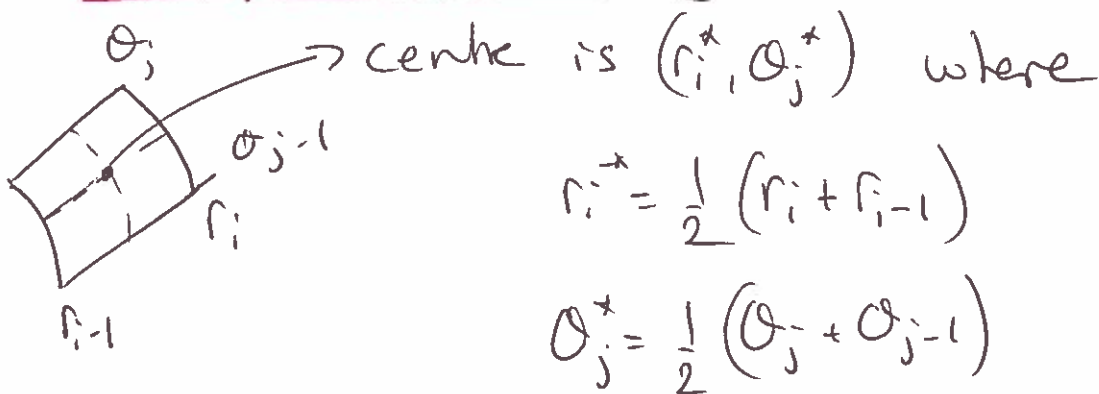 θ_j → centre is (r_i^*, θ_j^*) where
θ_{j-1}
r_i^* = 1/2 (r_i + r_{i-1})
r_i
r_{i-1}
θ_j^* = 1/2 (θ_j + θ_{j-1})